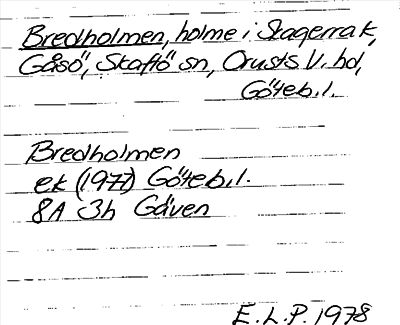 Bredholmen, holme i Skagerrak,
Gåsö, Skaftö sn, Orusts V. hd,
Göteb.l.
Bredholmen
ek (1977) Göteb.l.
8A 3h Gåven
E.L.P. 1978